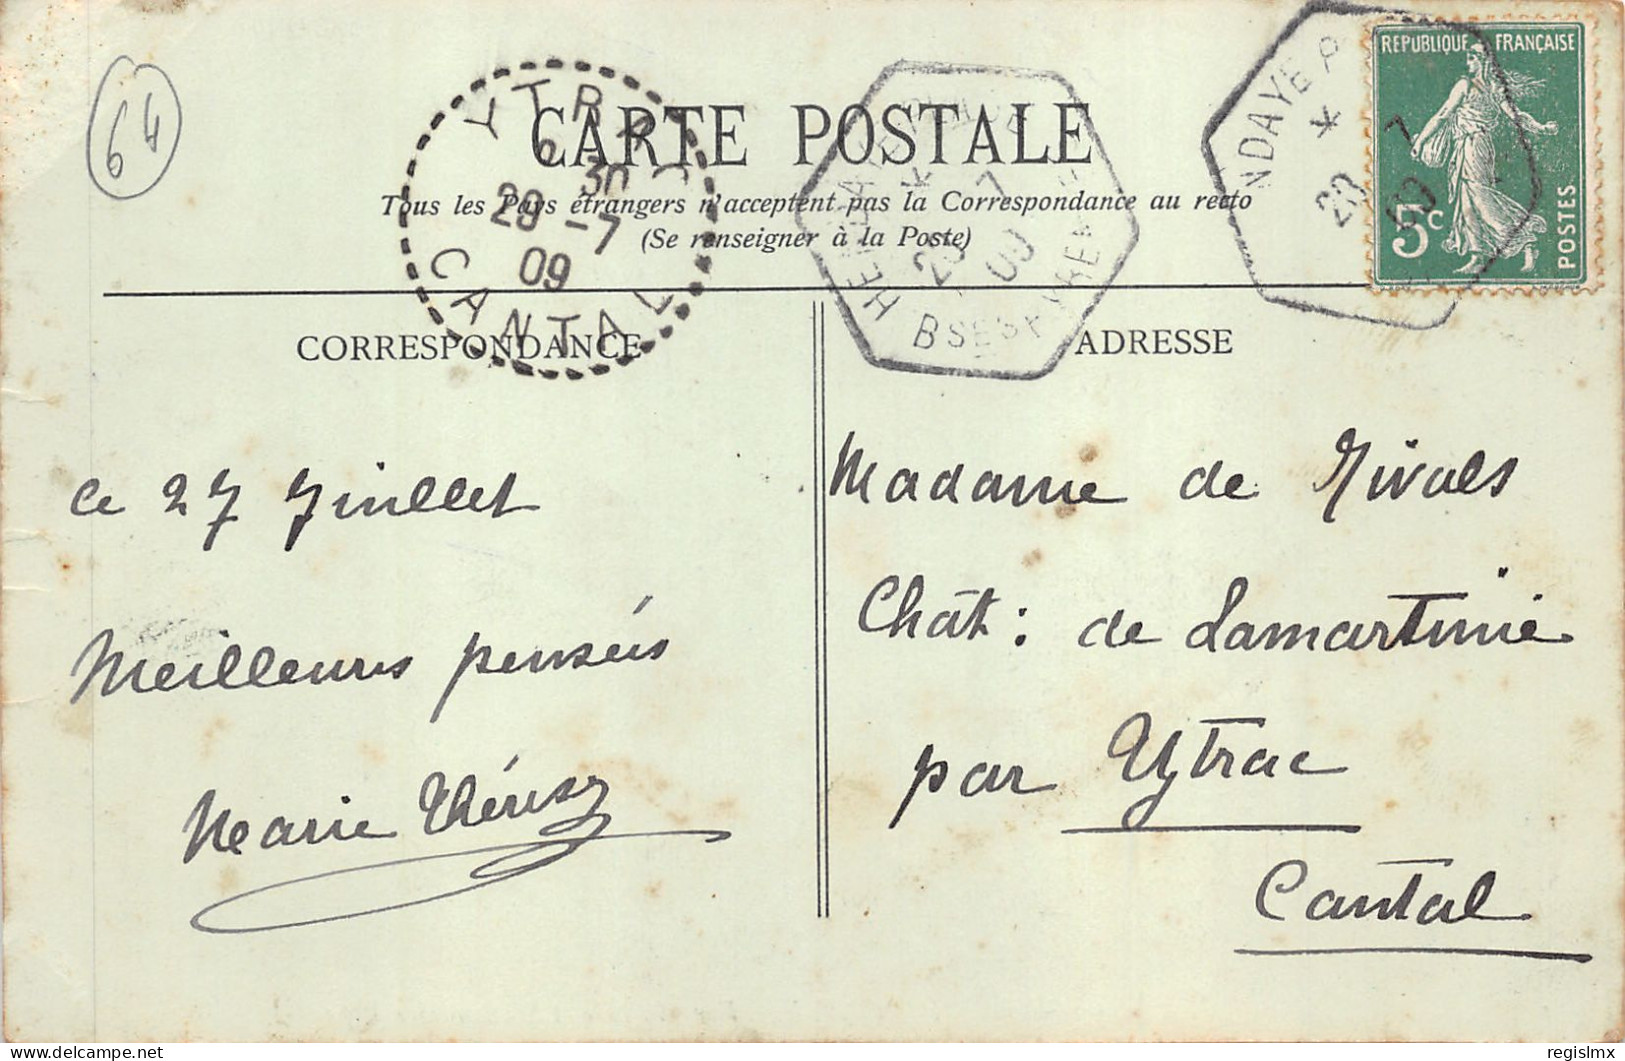 64
RÉPUBLIQUE FRANÇAISE
5c
POSTES
NDAYE P
*
20 7
09
YTRAC
6 30
28 -7
09
CANTAL
HENDAYE
*
7
09
BSES PYRÉNÉES
CARTE POSTALE
Tous les Pays étrangers n'acceptent pas la Correspondance au recto
(Se renseigner à la Poste)
CORRESPONDANCE
ADRESSE
Ce 27 Juillet
Meilleures pensées
Marie Thérèse
Madame de Rivals
Chât: de Lamartinie
par Ytrac
Cantal
© regislmx
delcampe.net